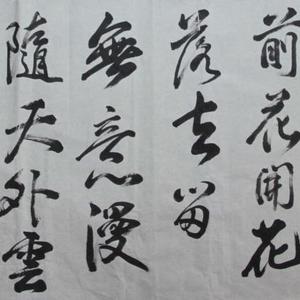 前花開花
落去留
無意漫
隨天外雲